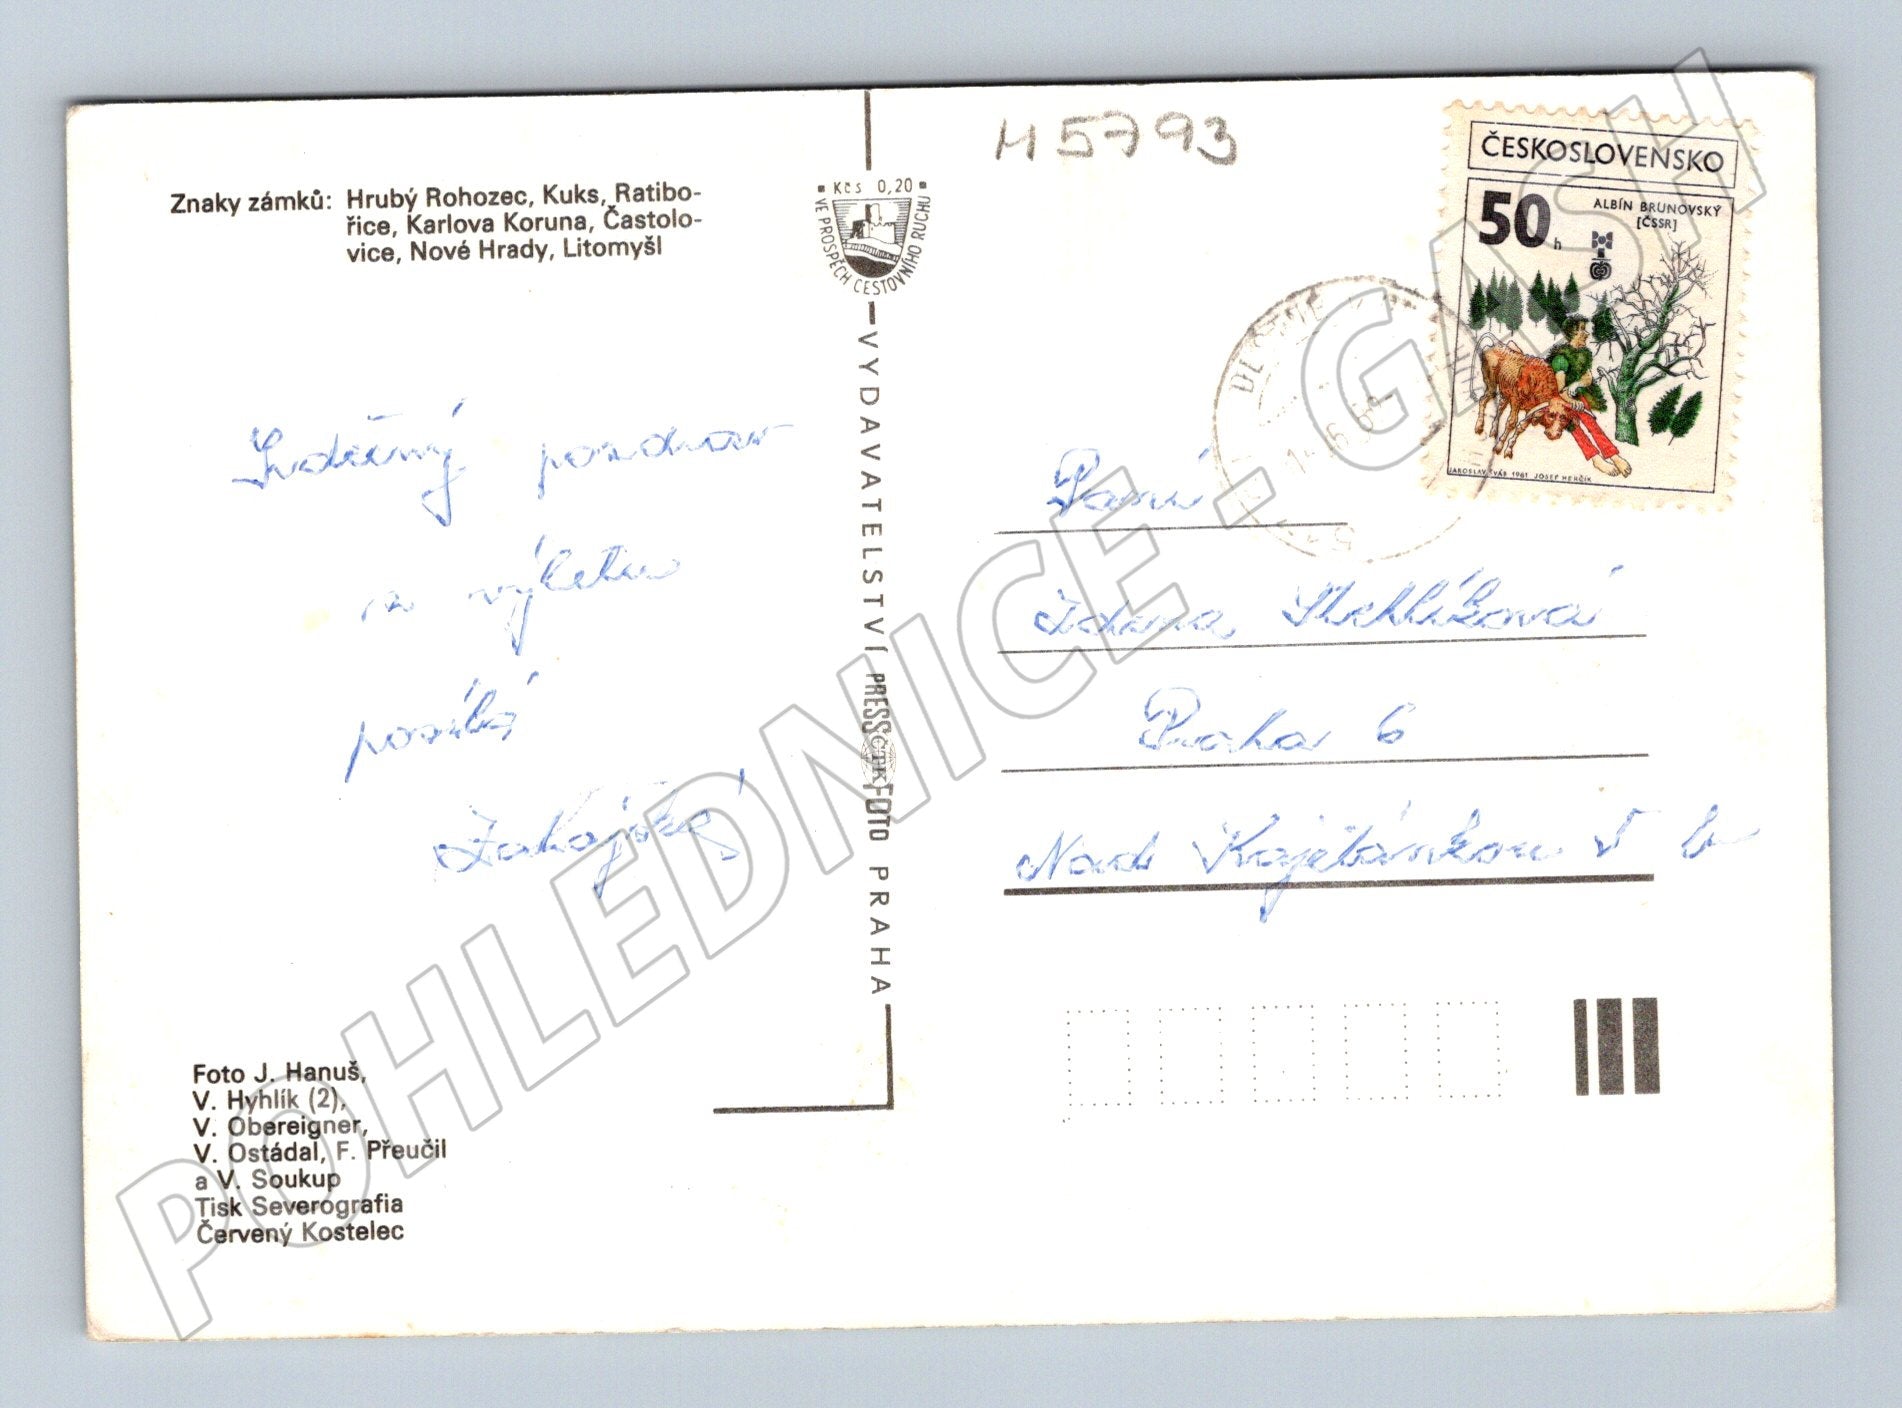 Znaky zámků: Hrubý Rohozec, Kuks, Ratibo-
řice, Karlova Koruna, Častolo-
vice, Nové Hrady, Litomyšl
Srdečný pozdrav
z výletu
posílá
Foto J. Hanuš,
V. Hyhlík (2),
V. Obereigner,
V. Ostádal, F. Přeučil
a V. Soukup
Tisk Severografia
Červený Kostelec
Kčs 0,20
VE PROSPĚCH CESTOVNÍHO RUCHU
VYDAVATELSTVÍ PRESSFOTO PRAHA
ČTK
H5793
ČESKOSLOVENSKO
50 h
ALBÍN BRUNOVSKÝ
[ČSSR]
JAROSLAV ŠVÁB 1981 JOSEF HERČÍK
Paní
Zdena Stehlíková
Praha 6
Nad Kajetánkou
POHLEDNICE - GASH